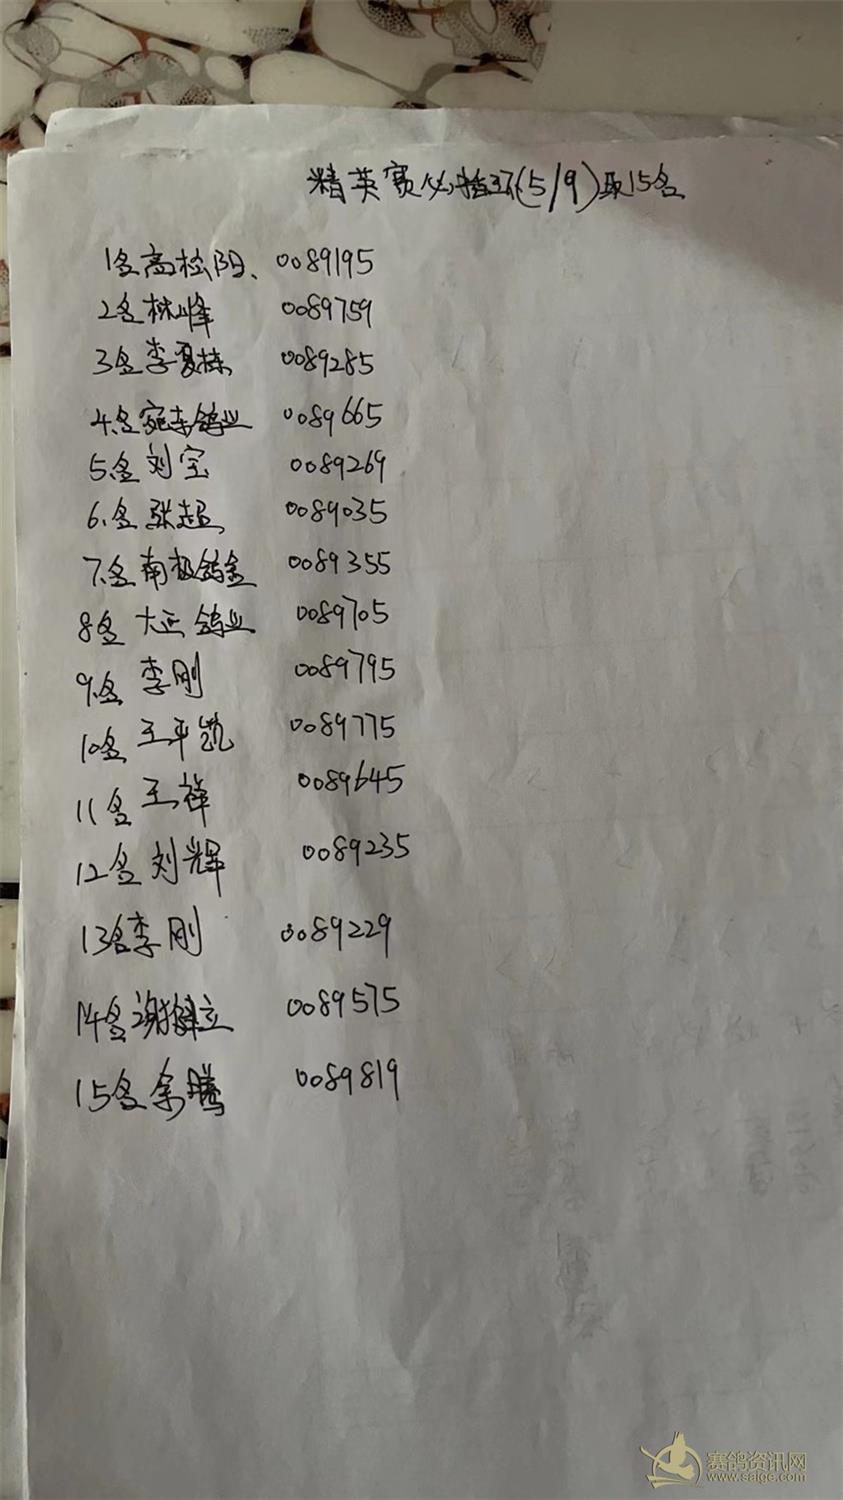 精英赛必指环(5/9)取15名
1名高松阳、0089195
2名林峰 0089759
3名李夏栋 0089285
4.名宛东鸽业 0089665
5.名刘宝 0089269
6.名张超 0089035
7.名南极鸽舍 0089355
8名大正鸽业 0089705
9.名李刚 0089795
10名王平凯 0089775
11名王祥 0089645
12名刘辉 0089235
13名李刚 0089229
14名谢 立 0089575
15名余腾 0089819
赛鸽资讯网
www.saige.com